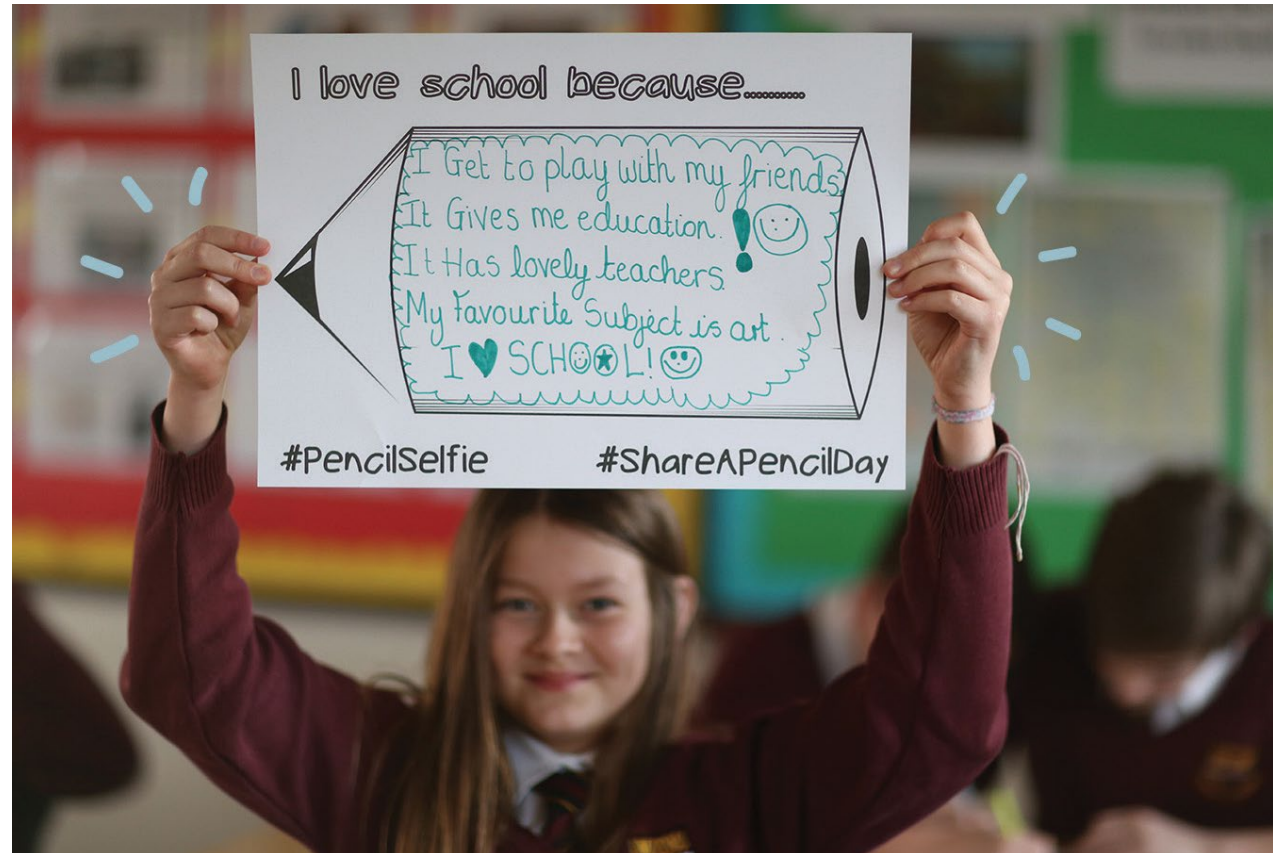 I love school because..........
I Get to play with my friends
It Gives me education. !
It Has lovely teachers.
My favourite Subject is art.
I ♥ SCHOOL! ☺
#PencilSelfie
#ShareAPencilDay